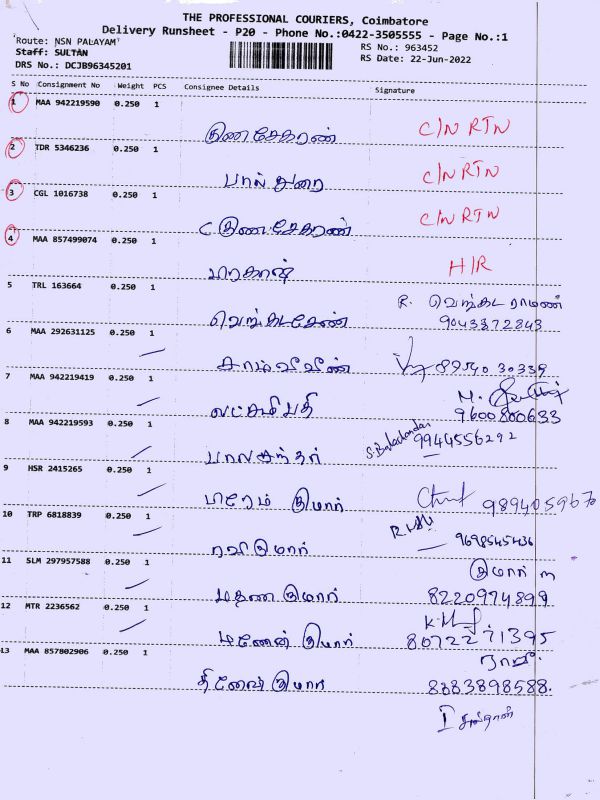 THE PROFESSIONAL COURIERS, Coimbatore
Delivery Runsheet - P20 - Phone No.:0422-3505555 - Page No.:1
Route: NSN PALAYAM
RS No.: 963452
Staff: SULTAN
RS Date: 22-Jun-2022
DRS No.: DCJB96345201
S No Consignment No Weight PCS Consignee Details Signature
1 MAA 942219590 0.250 1
குணசேகரண் C/N RTN
2 TDR 5346236 0.250 1
பால்துரை C/N RTN
3 CGL 1016738 0.250 1
C குணசேகரண் C/N RTN
4 MAA 857499074 0.250 1
H/R
5 TRL 163664 0.250 1
R. வெங்கட ராமண்
வெங்கடசேண் 9043372843
6 MAA 292631125 0.250 1
89540 30339
7 MAA 942219419 0.250 1
M.
லட்சுமிபதி 9600800633
8 MAA 942219593 0.250 1
9944556292
பாலசந்தர்
9 HSR 2415265 0.250 1
பிரேம் குமார் 989405967
10 TRP 6818839 0.250 1
ரவிகுமார் 9698545436
11 SLM 297957588 0.250 1
குமார் m
மதண குமார் 8220974899
12 MTR 2236562 0.250 1
K.M
குமார் 8072271395
13 MAA 857802906 0.250 1
குமார் 8383898588.